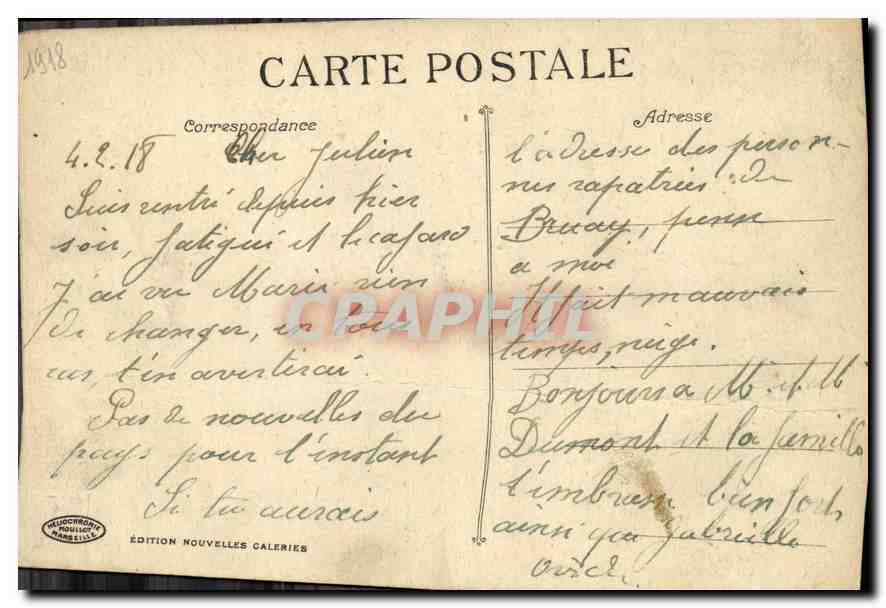 1918
CARTE POSTALE
Correspondance
4.2.18 Cher Julien
Suis rentré depuis hier
soir, fatigué et le cafard
J'ai vu Marie rien
de changer, en tous
cas, t'en avertirai.
Pas de nouvelles du
pays pour l'instant
Si tu aurais
HELIOCHROMIE
MOULLOT
MARSEILLE
ÉDITION NOUVELLES GALERIES
Adresse
l'adresse des person-
nes rapatriées de
Bruay, pense
a moi
Il fait mauvais
temps, neige.
Bonjours a M et M
Dumont et la famille
t'embrasse bien fort
ainsi que Gabrielle
CPARAPHIL